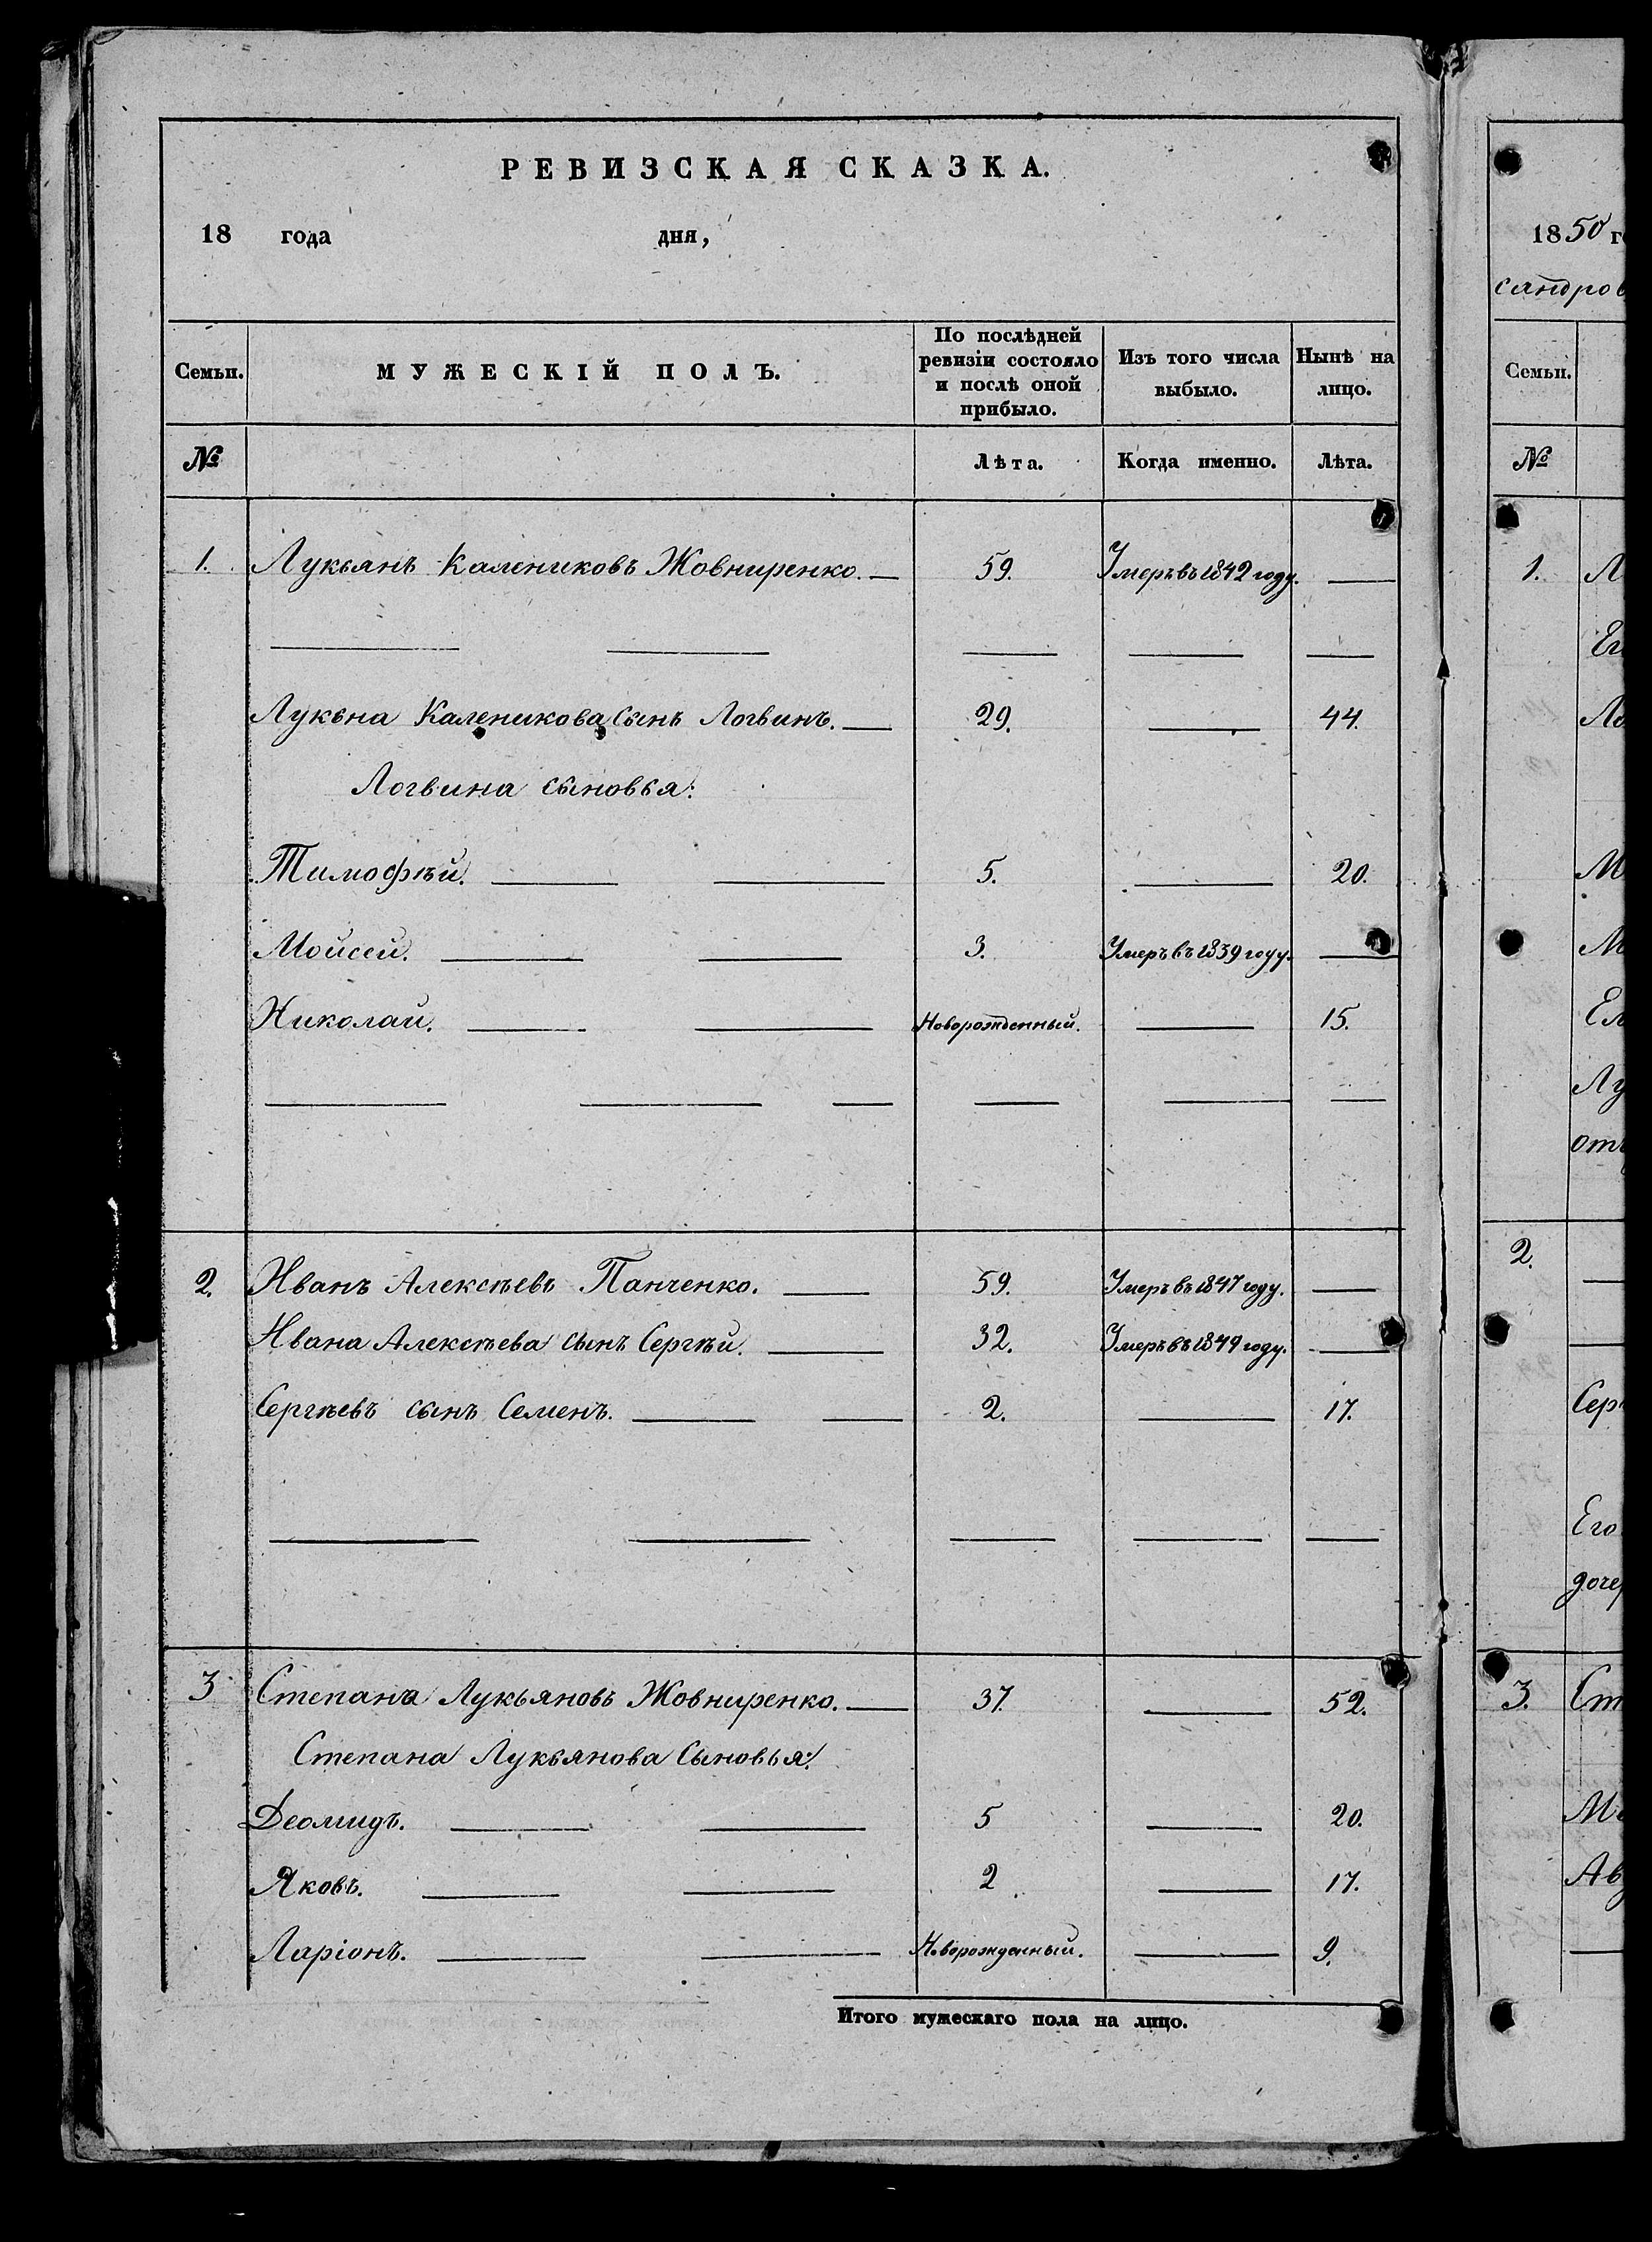 РЕВИЗСКАЯ СКАЗКА.
18 года дня,
Семьи. МУЖЕСКІЙ ПОЛЪ. По послѣдней ревизіи состояло и послѣ оной прибыло. Изъ того числа выбыло. Нынѣ на лицо.
№ Лѣта. Когда именно. Лѣта.
1. Лукьянъ Калениковъ Жовниренко. 59. Умеръ въ 1842 году.
Лукьна Каленикова Сынъ Логвинъ. 29. 44.
Логвина сыновья:
Тимофѣй. 5. 20.
Мойсей. 3. Умеръ въ 1839 году.
Николай. Новорожденный. 15.
2. Иванъ Алексѣевъ Панченко. 59. Умеръ въ 1847 году.
Ивана Алексѣева сынъ Сергѣй. 32. Умеръ въ 1849 году.
Сергѣевъ сынъ Семенъ. 2. 17.
3 Степана Лукьяновъ Жовниренко. 37. 52.
Степана Лукьянова Сыновья:
Деомидъ. 5 20.
Яковъ. 2 17.
Ларіонъ. Новорожденный. 9.
Итого мужескаго пола на лицо.
1850 г
сандров
Семьи.
№
1. Л
Ег
Ло
М
М
Ел
Лу
отъ
2.
Сер
Его
дочер
3. Ст
Ма
Ав